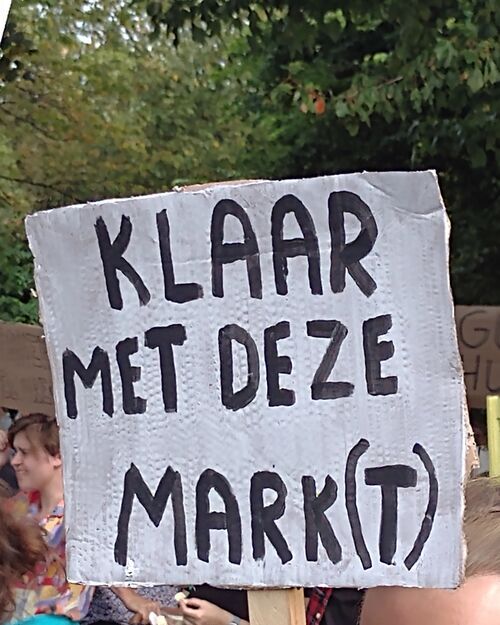 KLAAR
MET DEZE
MARK(T)